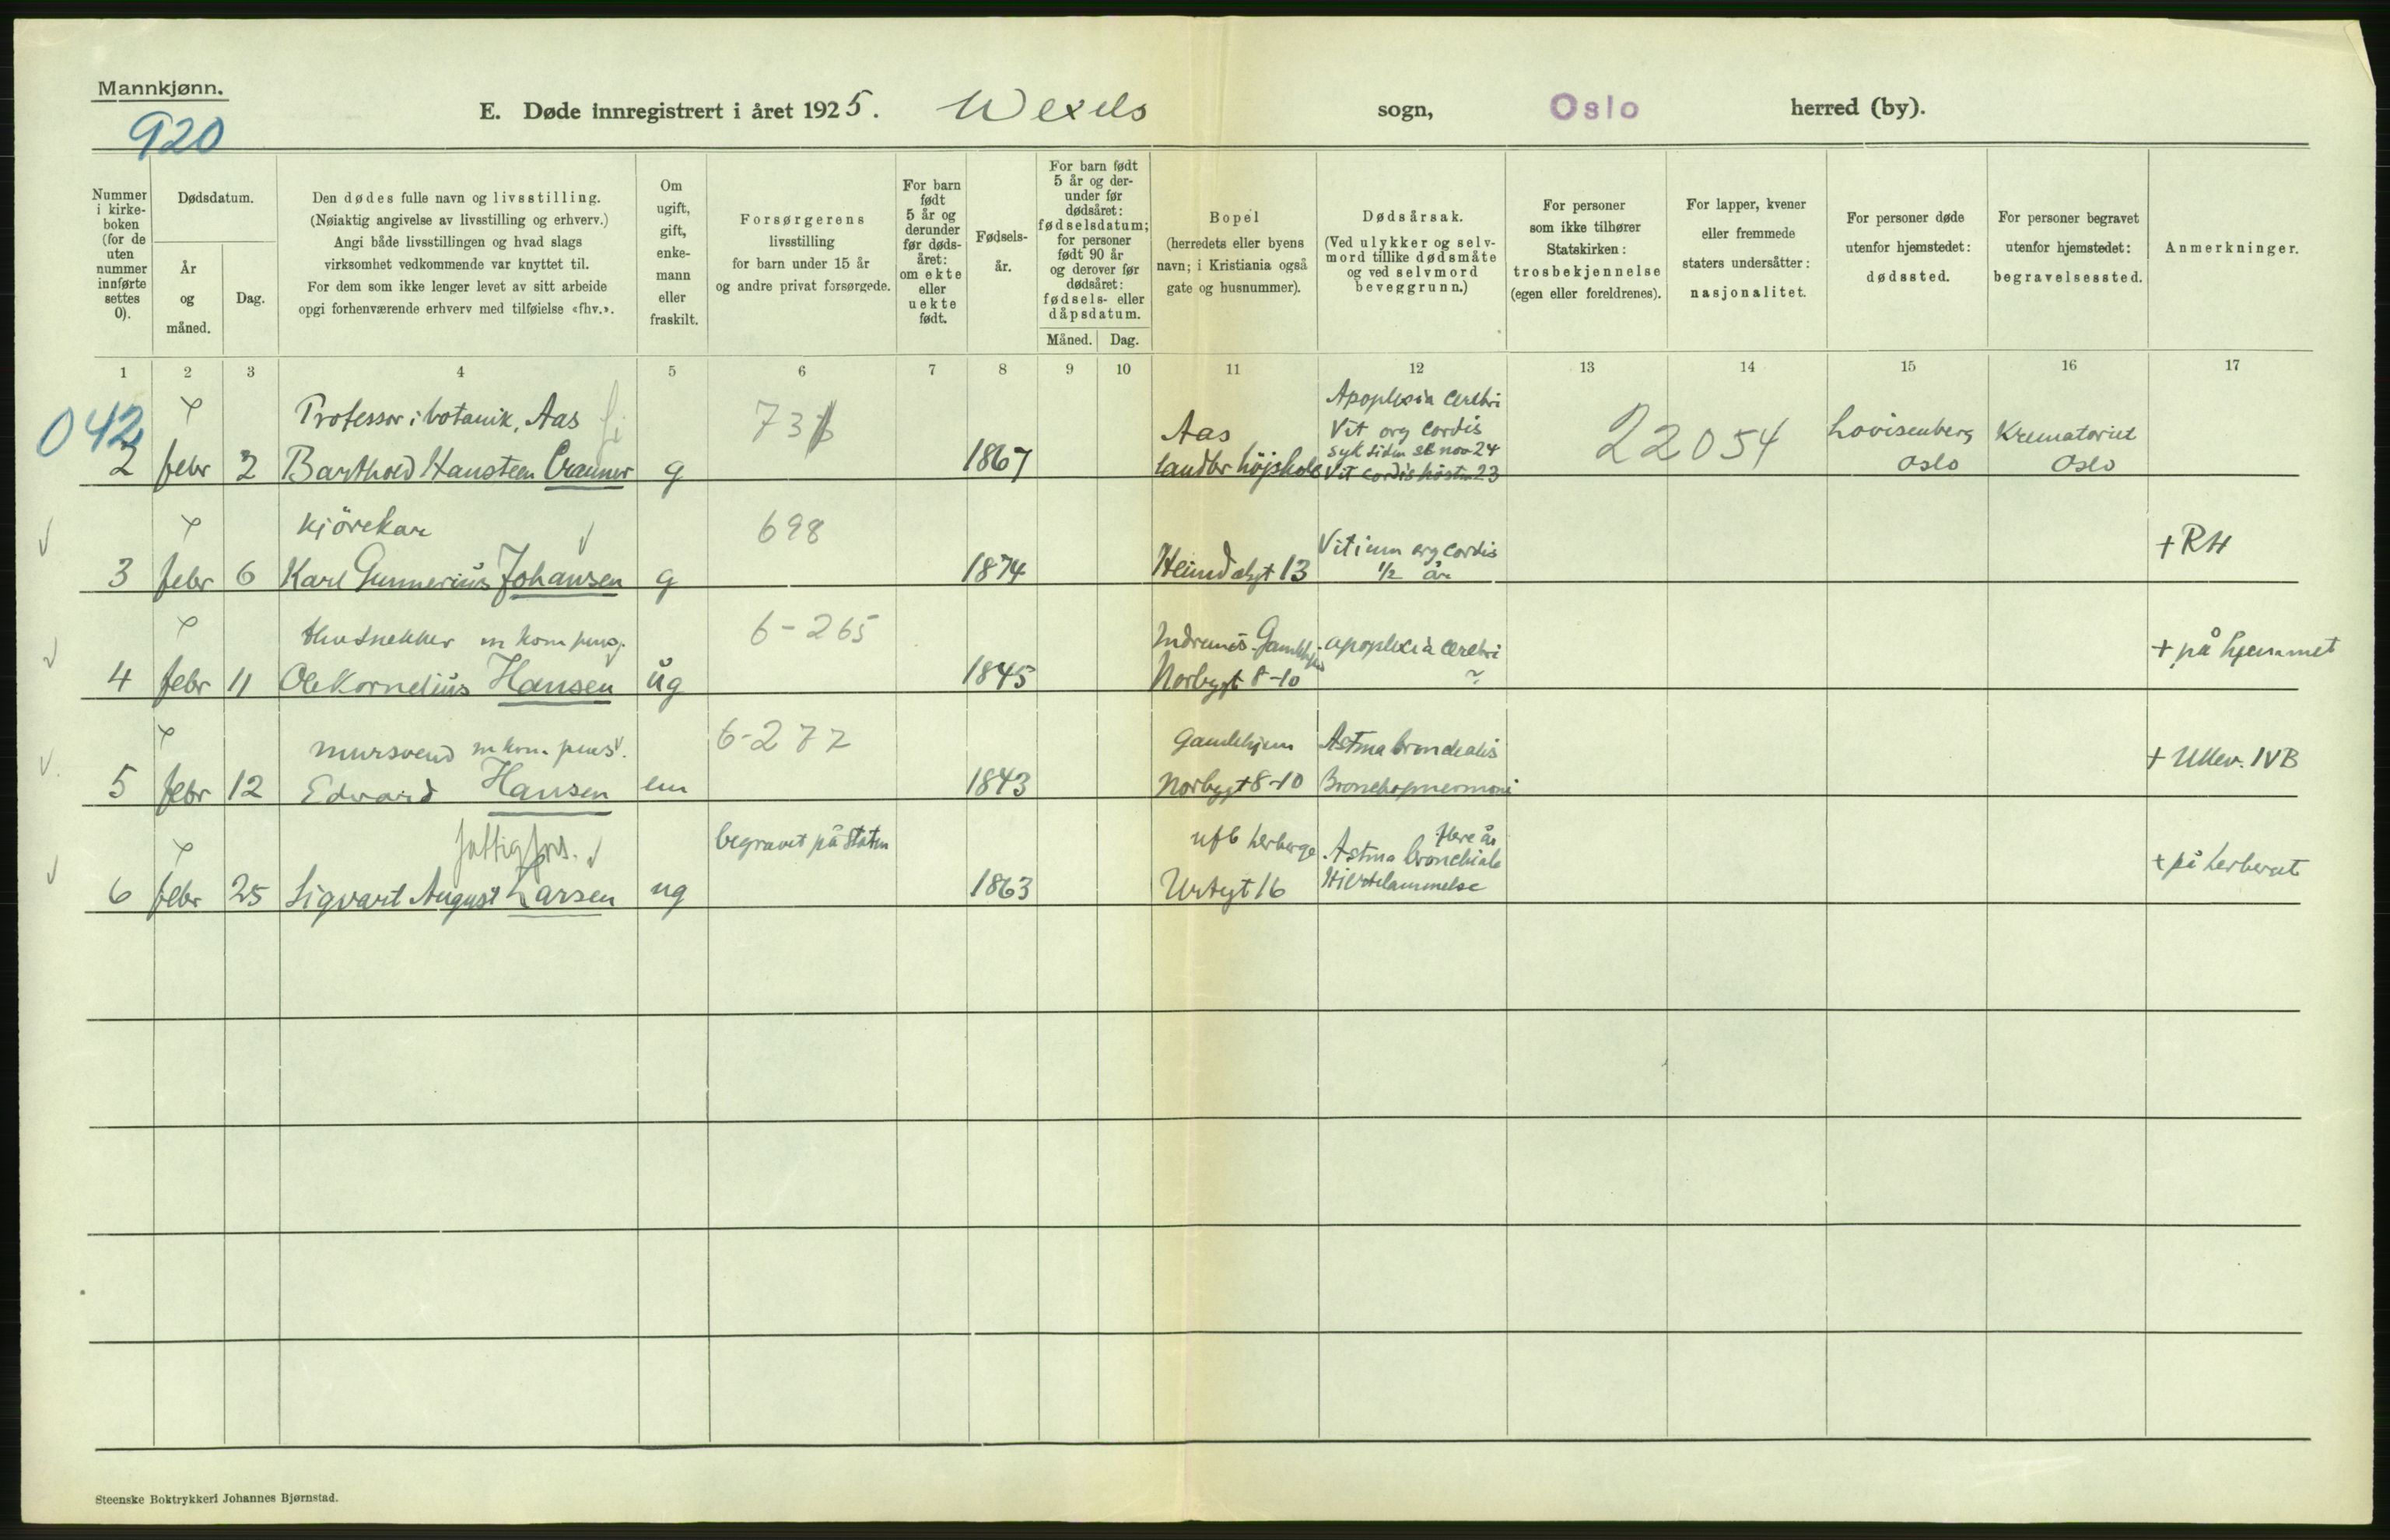 Mannkjønn.
920
E. Døde innregistrert i året 1925. Wexels sogn, Oslo herred (by).
Nummer i kirke-boken (for de uten nummer innførte settes 0).
Dødsdatum.
År og måned.
Dag.
Den dødes fulle navn og livsstilling.
(Nøiaktig angivelse av livsstilling og erhverv.)
Angi både livsstillingen og hvad slags
virksomhet vedkommende var knyttet til.
For dem som ikke lenger levet av sitt arbeide
opgi forhenværende erhverv med tilføielse «fhv.».
Om ugift, gift, enke-mann eller fraskilt.
Forsørgerens
livsstilling
for barn under 15 år
og andre privat forsørgede.
For barn født 5 år og derunder før døds-året: om ekte eller uekte født.
Fødsels-år.
For barn født 5 år og der-under før dødsåret: fødselsdatum; for personer født 90 år og derover før dødsåret: fødsels- eller dåpsdatum.
Måned. Dag.
Bopel
(herredets eller byens
navn; i Kristiania også
gate og husnummer).
Dødsårsak.
(Ved ulykker og selv-
mord tillike dødsmåte
og ved selvmord
beveggrunn.)
For personer
som ikke tilhører
Statskirken:
trosbekjennelse
(egen eller foreldrenes).
For lapper, kvener
eller fremmede
staters undersåtter:
nasjonalitet.
For personer døde
utenfor hjemstedet:
dødssted.
For personer begravet
utenfor hjemstedet:
begravelsessted.
Anmerkninger.
1 2 3 4 5 6 7 8 9 10 11 12 13 14 15 16 17
042 Professor i botanik, Aas 73 Apoplexia cerebri
Aas Vit org cordis 22054 Lovisenberg Krematoriet
syk siden nov 24
2 febr 2 Barthold Hansteen Cranner g 1867 landbr højskole Vit cordis høsten 23 Oslo Oslo
Kjörekar 698 Vitium org cordis + RH
3 febr 6 Karl Gunnerius Johansen g 1874 Heimdalgt 13 1/2 år
m kom pens. 6-265 Indremis. Gamlehjem apoplexia cerebri + på hjemmet
4 febr 11 Ole Kornelius Hansen ug 1845 Norbygt 8-10 ?
mursvend m kom pens. 6-277 Gamlehjem Astma bronchialis + Ullev. IVB
5 febr 12 Edvard Hansen em 1843 Norbygt 8-10 Bronchopneumoni
fattigfors. begravet på Staten uf6 herberge flere år
Astma bronchiale + på herberget
6 febr 25 Sigvart August Larsen ug 1863 Urtegt 16 Hjertelammelse
Steenske Boktrykkeri Johannes Bjørnstad.